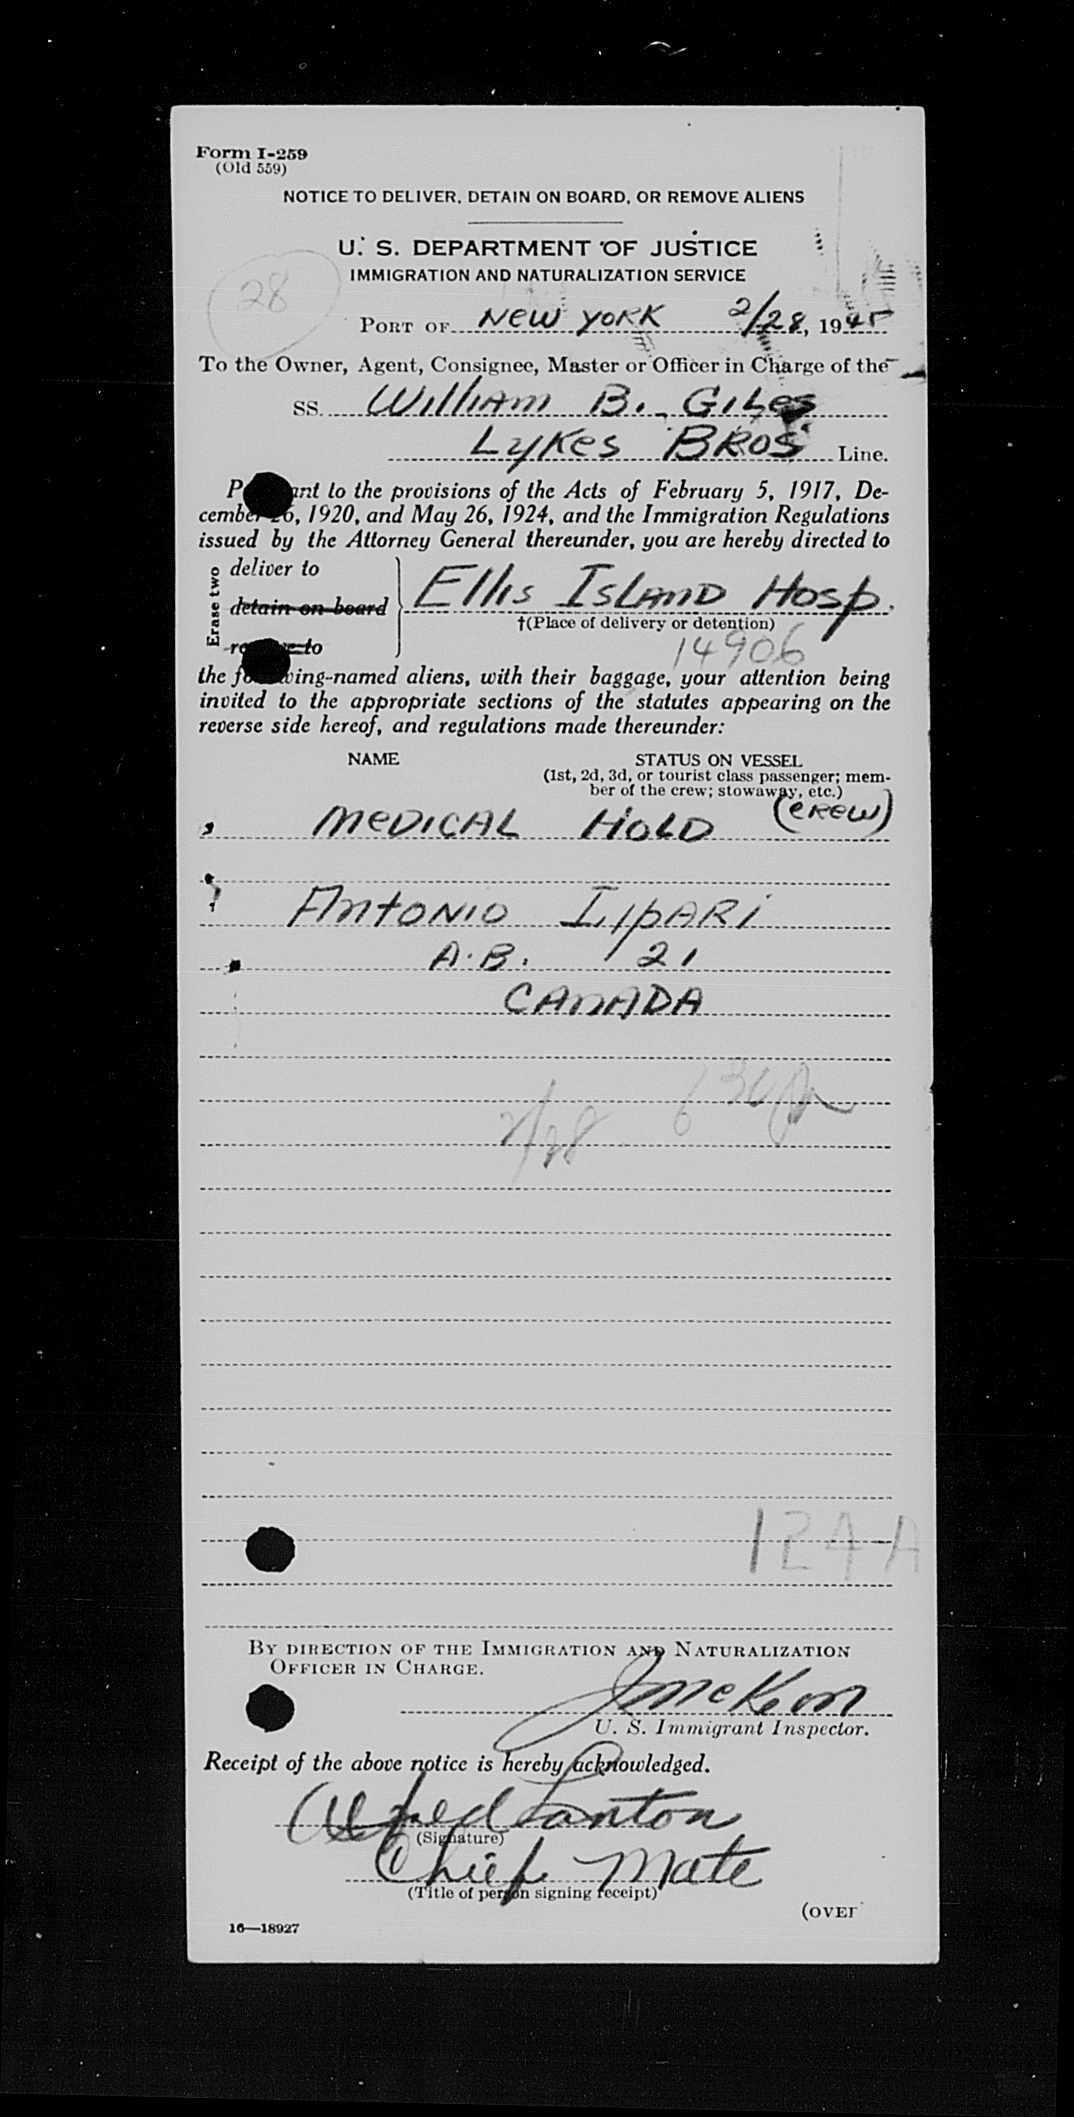 Form I-259
(Old 559)
NOTICE TO DELIVER, DETAIN ON BOARD, OR REMOVE ALIENS
U. S. DEPARTMENT OF JUSTICE
IMMIGRATION AND NATURALIZATION SERVICE
28
PORT OF New York 2/28, 1945
To the Owner, Agent, Consignee, Master or Officer in Charge of the
SS. William B. Giles
Lykes Bros Line.
to the provisions of the Acts of February 5, 1917, De-
cember 26, 1920, and May 26, 1924, and the Immigration Regulations
issued by the Attorney General thereunder, you are hereby directed to
Erase two
deliver to
detain on board
to
Ellis Island Hosp.
†(Place of delivery or detention)
14906
the following-named aliens, with their baggage, your attention being
invited to the appropriate sections of the statutes appearing on the
reverse side hereof, and regulations made thereunder:
NAME STATUS ON VESSEL
(1st, 2d, 3d, or tourist class passenger; mem-
ber of the crew; stowaway, etc.)
Medical Hold (crew)
Antonio Lipari
A.B. 21
Canada
2/28 630
124-A
BY DIRECTION OF THE IMMIGRATION AND NATURALIZATION
OFFICER IN CHARGE.
U. S. Immigrant Inspector.
Receipt of the above notice is hereby acknowledged.
Alfred Lanton
(Signature)
Chief Mate
(Title of person signing receipt)
(OVER
16—18927